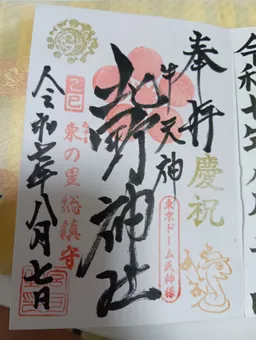 奉拝
慶祝
牛天神
北野神社
東京ドーム氏神様
己巳
東の里総鎮守
令和七年八月七日
令和七年